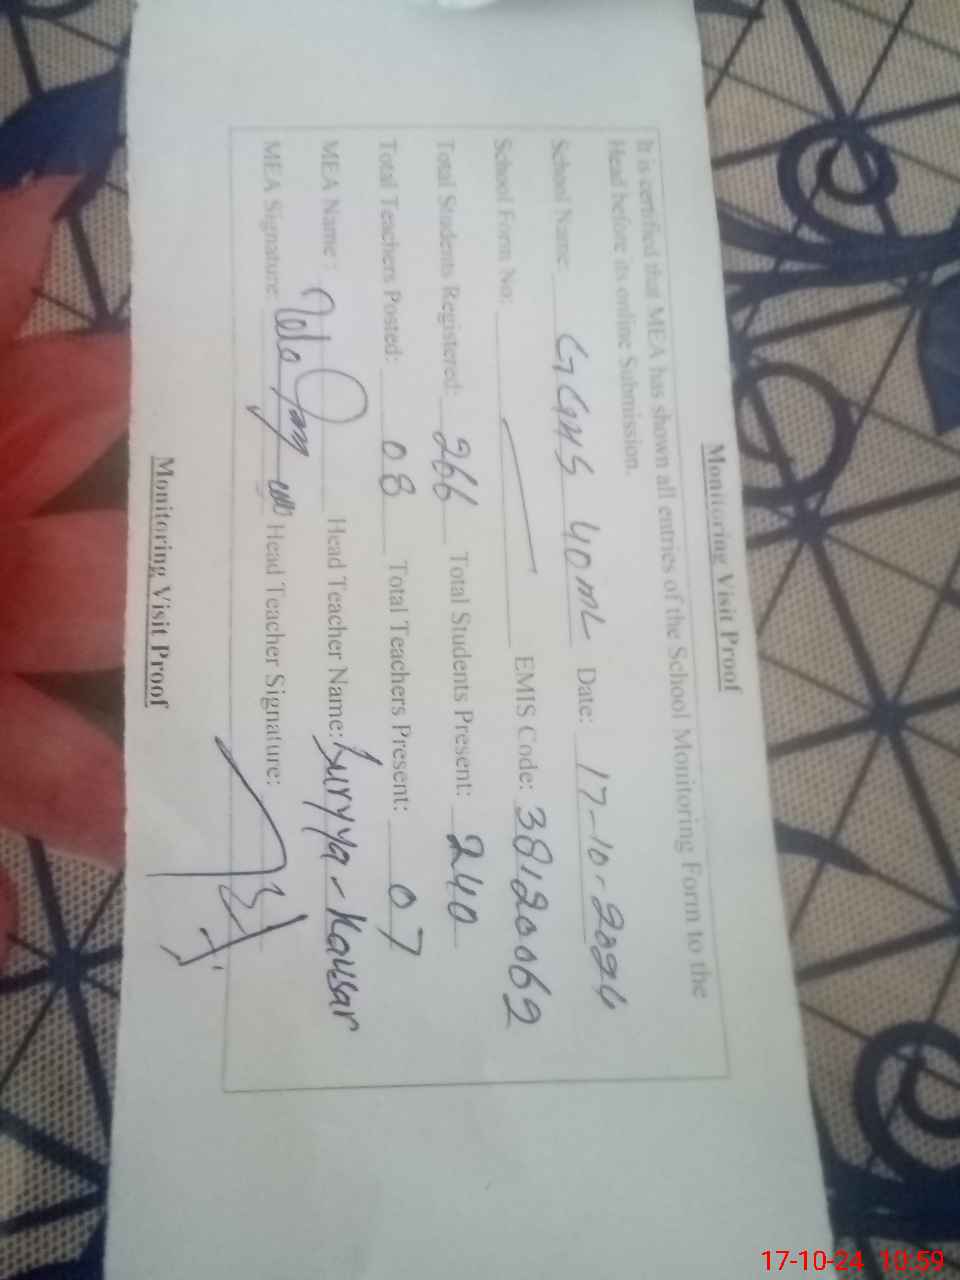 Monitoring Visit Proof
It is certified that MEA has shown all entries of the School Monitoring Form to the
Head before its online Submission.
School Name: GGHS 40ML Date: 17-10-2024
School Form No: EMIS Code: 38120062
Total Students Registered: 266 Total Students Present: 240
Total Teachers Posted: 08 Total Teachers Present: 07
MEA Name: Head Teacher Name: Surryya-Kausar
MEA Signature: Head Teacher Signature:
Monitoring Visit Proof
17-10-24 10:59